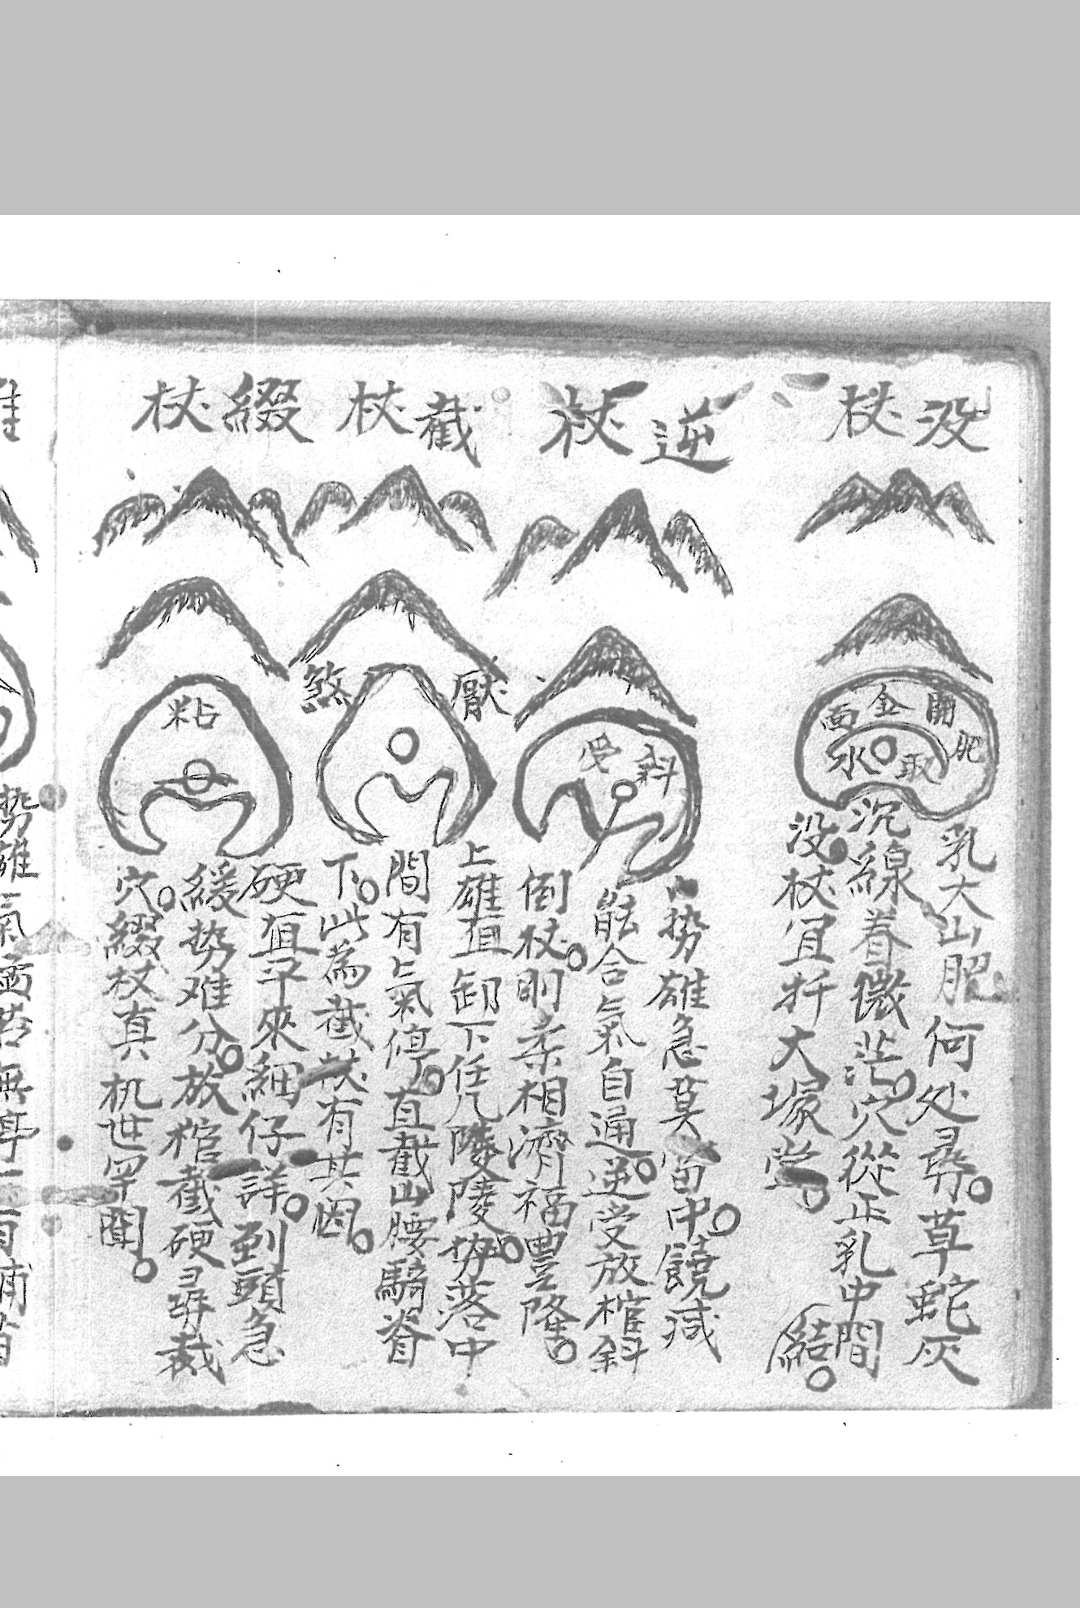 没杖
開金面
肥取水
乳大山肥何处尋草蛇灰
沉線眷微茫穴從正乳中間
結
没杖宜扦大塚堂
逆杖
斜受
山勢雄急莫當中饒减
能合氣自通逆受放棺斜
倒杖剛柔相濟福豊隆
截杖
厭煞
上雄垣卸下任凡陵陵势落中
間有上氣停直截山腰騎脊
下此為截杖有其因
綴杖
粘
硬垣平來細仔詳到頭急
緩势难分放棺截硬尋裁
穴綴杖真机世罕聞